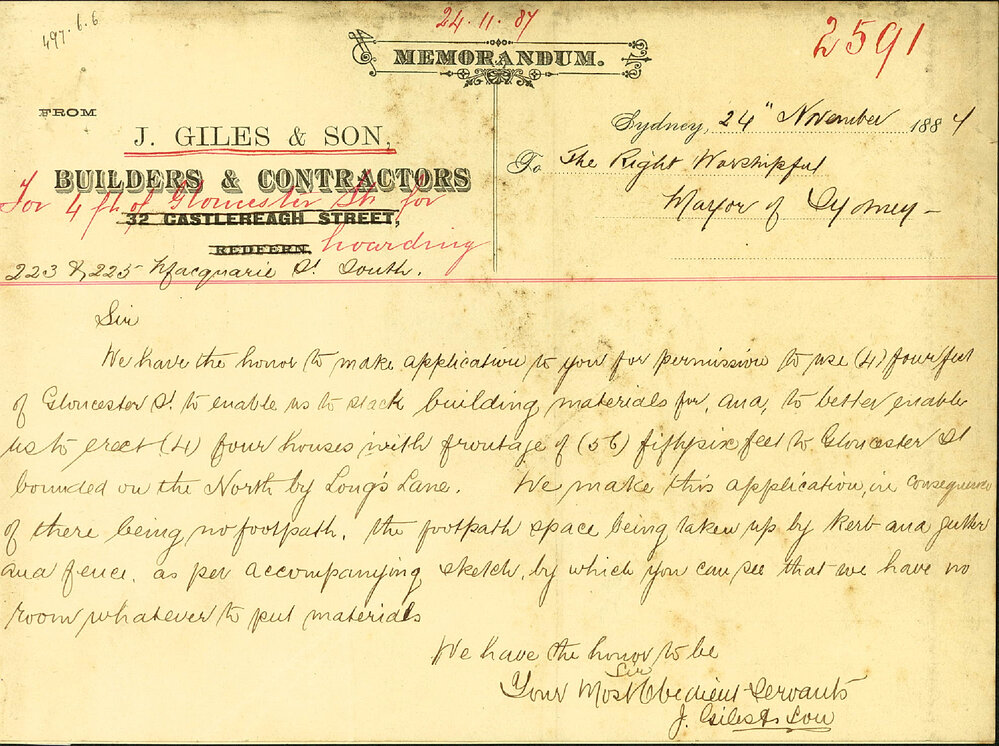 497.6.6
24.11.84
2591
MEMORANDUM.
FROM
J. GILES & SON,
BUILDERS & CONTRACTORS
For 4 ft of Gloucester St. for
32 CASTLEREAGH STREET,
REDFERN. hoarding
223 & 225 Macquarie St South.
Sydney, 24" November 1884
To The Right Worshipful
Mayor of Sydney -
Sir
We have the honor to make application to you for permission to use (4) four feet
of Gloucester St. to enable us to stack building materials for, and, to better enable
us to erect (4) four houses with frontage of (56) fiftysix feet to Gloucester St
bounded on the North by Long's Lane. We make this application, in consequence
of there being no footpath, the footpath space being taken up by kerb and gutter
and fence, as per accompanying sketch, by which you can see that we have no
room whatever to put materials
We have the honor to be
Sir
Your Most Obedient Servants
J. Giles & Son